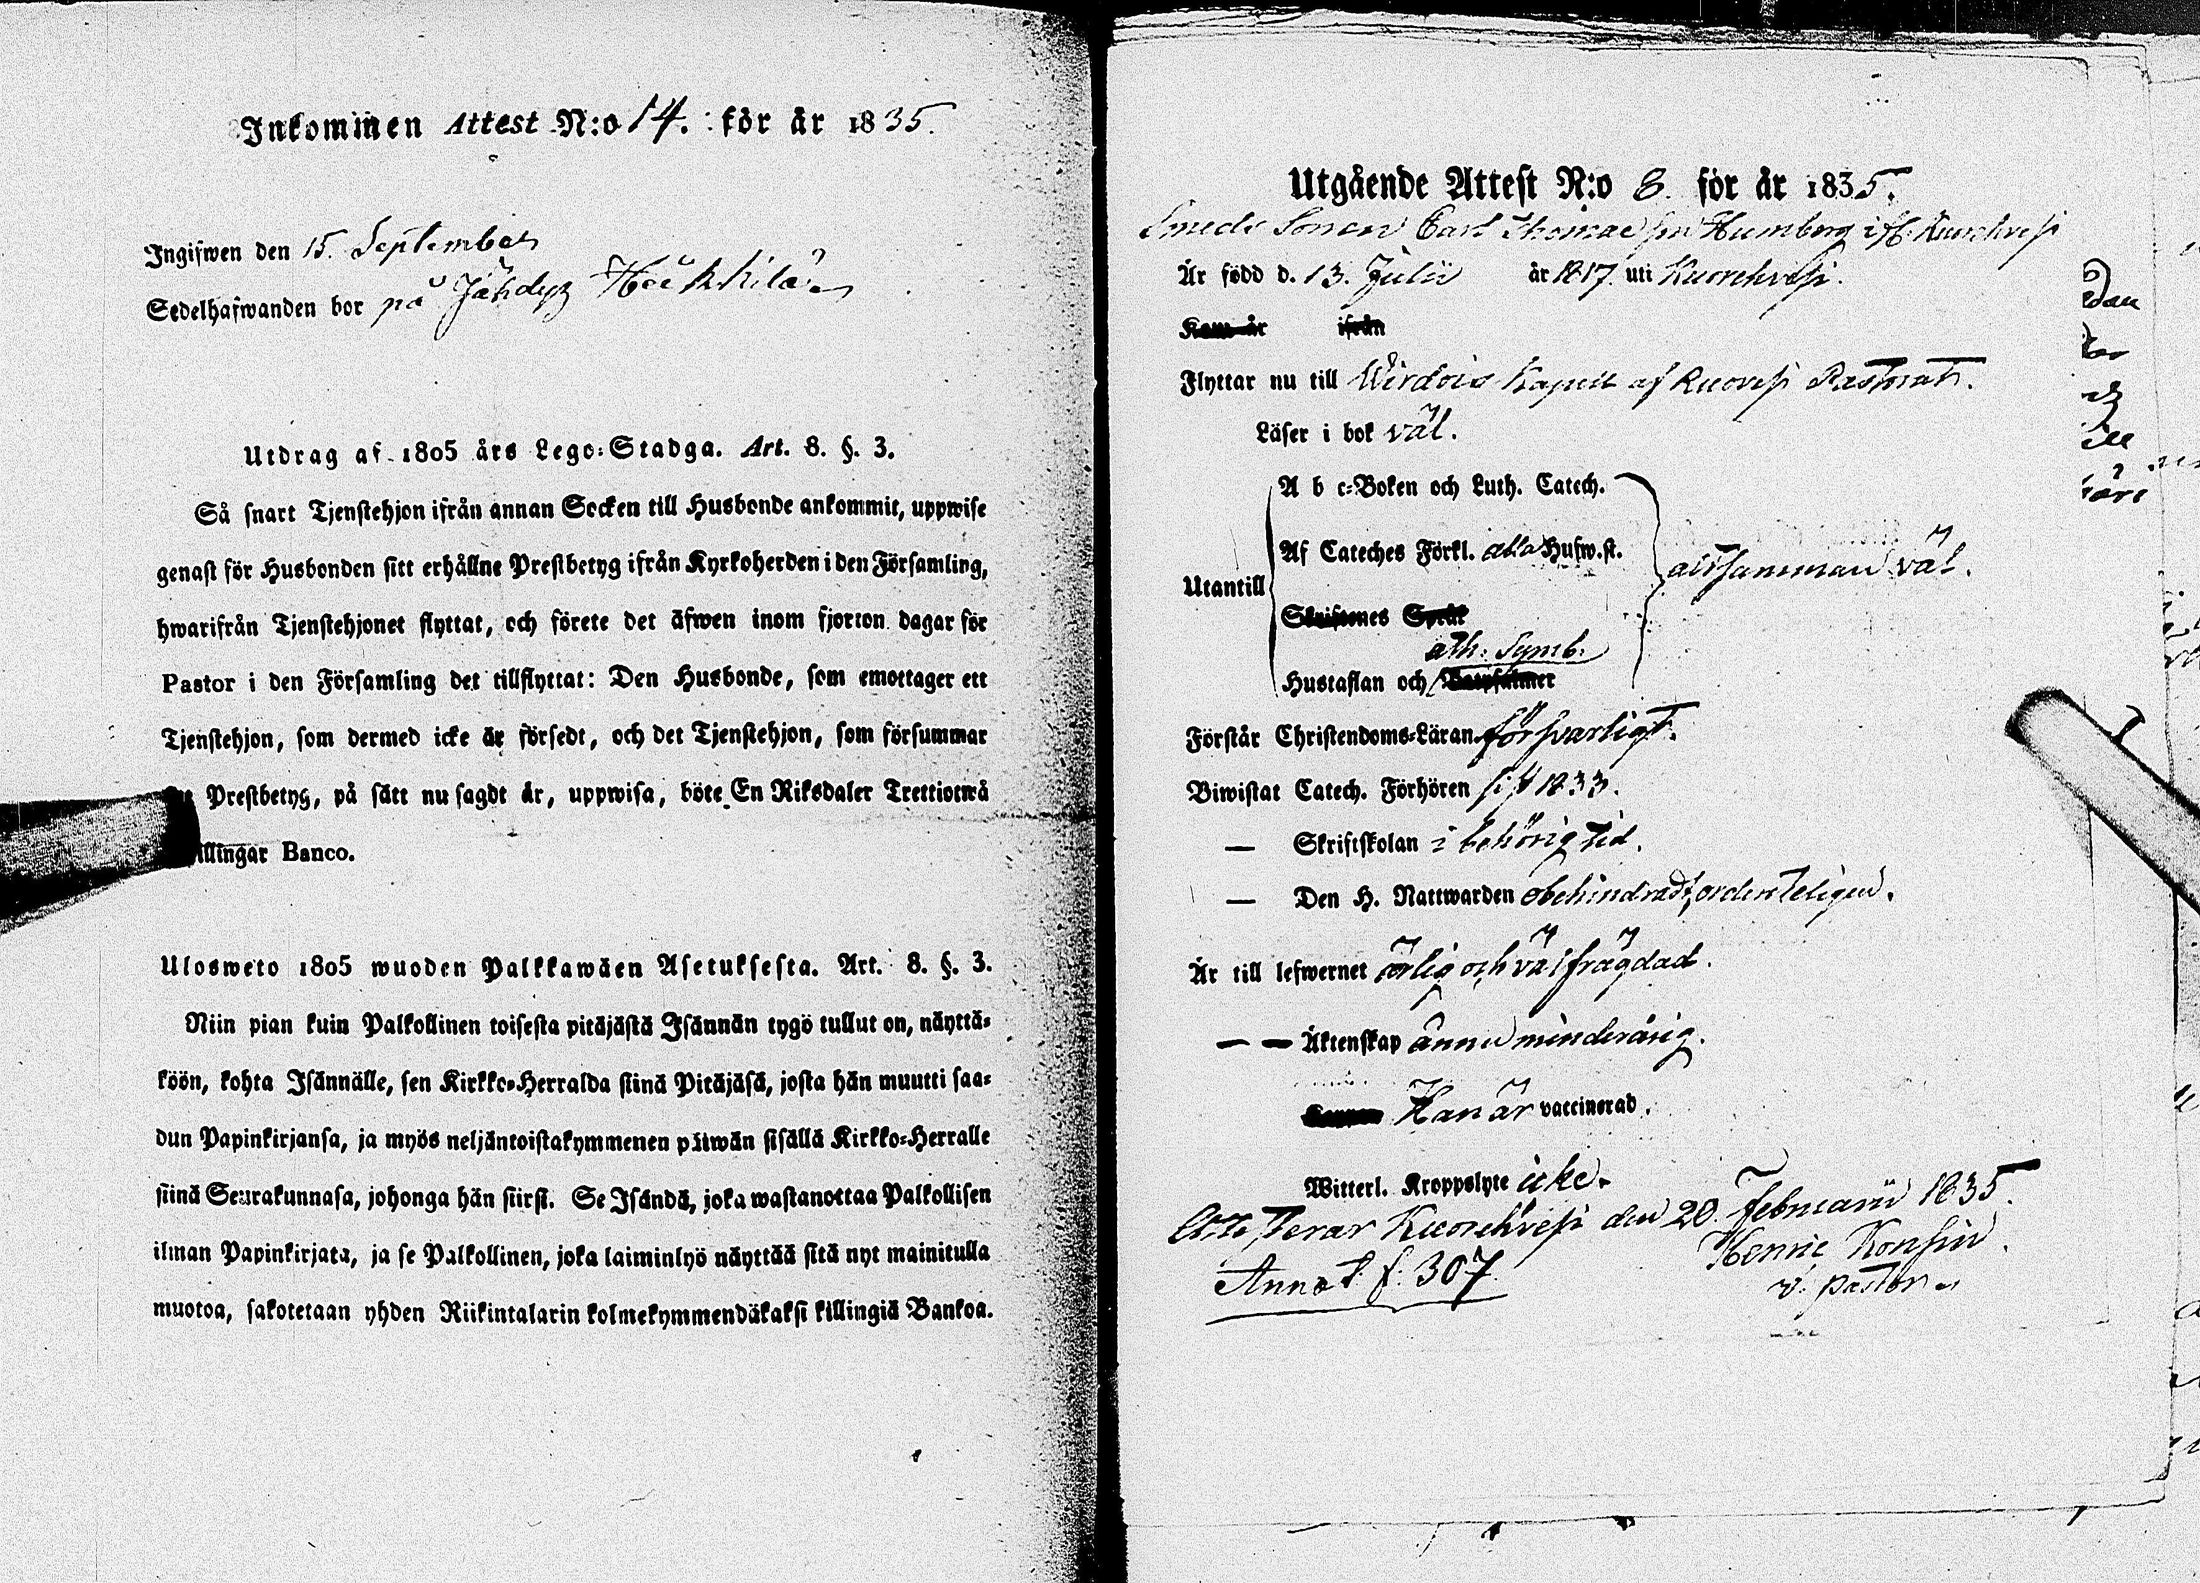 Inkommen Attest N:o 14. för år 1835.
Ingifwen den 15. September
Sedelhafwanden bor på Jähdyx
Utdrag af 1805 års Lego-Stadga. Art. 8. §. 3.
Så snart Tjenstehjon ifrån annan Socken till Husbonde ankommit, uppwise
genast för Husbonden sitt erhållne Prestbetyg ifrån Kyrkoherden i den Församling,
hwarifrån Tjenstehjonet flyttat, och förete det äfwen inom fjorton dagar för
Pastor i den Församling det tillflyttat: Den Husbonde, som emottager ett
Tjenstehjon, som dermed icke är försedt, och det Tjenstehjon, som försummar
Prestbetyg, på sätt nu sagdt är, uppwisa, böte En Riksdaler Trettiotwå
illingar Banco.
Ulosweto 1805 wuoden Palkkawäen Asetuksesta. Art. 8. §. 3.
Niin pian kuin Palkollinen toisesta pitäjästä Isännän tygö tullut on, näyttä-
köön, kohta Isännälle, sen Kirkko-Herralda siinä Pitäjäsä, josta hän muutti saa-
dun Papinkirjansa, ja myös neljäntoistakymmenen päiwän sisällä Kirkko-Herralle
siinä Seurakunnasa, johonga hän siirsi. Se Isändä, joka wastanottaa Palkollisen
ilman Papinkirjata, ja se Palkollinen, joka laiminlyö näyttää sitä nyt mainitulla
muotoa, sakotetaan yhden Riikintalarin kolmekymmendäkaksi killingiä Bankoa.
Utgående Attest N:o 8. för år 1835.
Smeds Sonen Carl Thomae son Humberg ifr. Kuorehvesi
Är född d. 13. Julii år 1817. uti Kuorehvesi.
Kom år ifrån
Flyttar nu till Wirdois Kapell af Ruovesi Pastorat.
Läser i bok väl.
A b c-Boken och Luth. Catech.
Af Cateches Förkl. alla Husw.st.
altsamman väl.
Utantill
Skriftenes Språk
ath. Symb.
Hustaflan och
Förstår Christendoms-Läran försvarligt.
Biwistat Catech. Förhören sist 1833.
— Skriftskolan i behörig tid.
— Den H. Nattwarden obehindradt, ordenteligen.
Är till lefwernet ärlig och välfrägdad.
— — Äktenskap ännu minderårig.
Han är vaccinerad.
Witterl. Kroppslyte icke.
Attesterar Kuorehvesi den 20. Februarii 1835.
Henric Konsin
v. pastor
Annot. f. 307